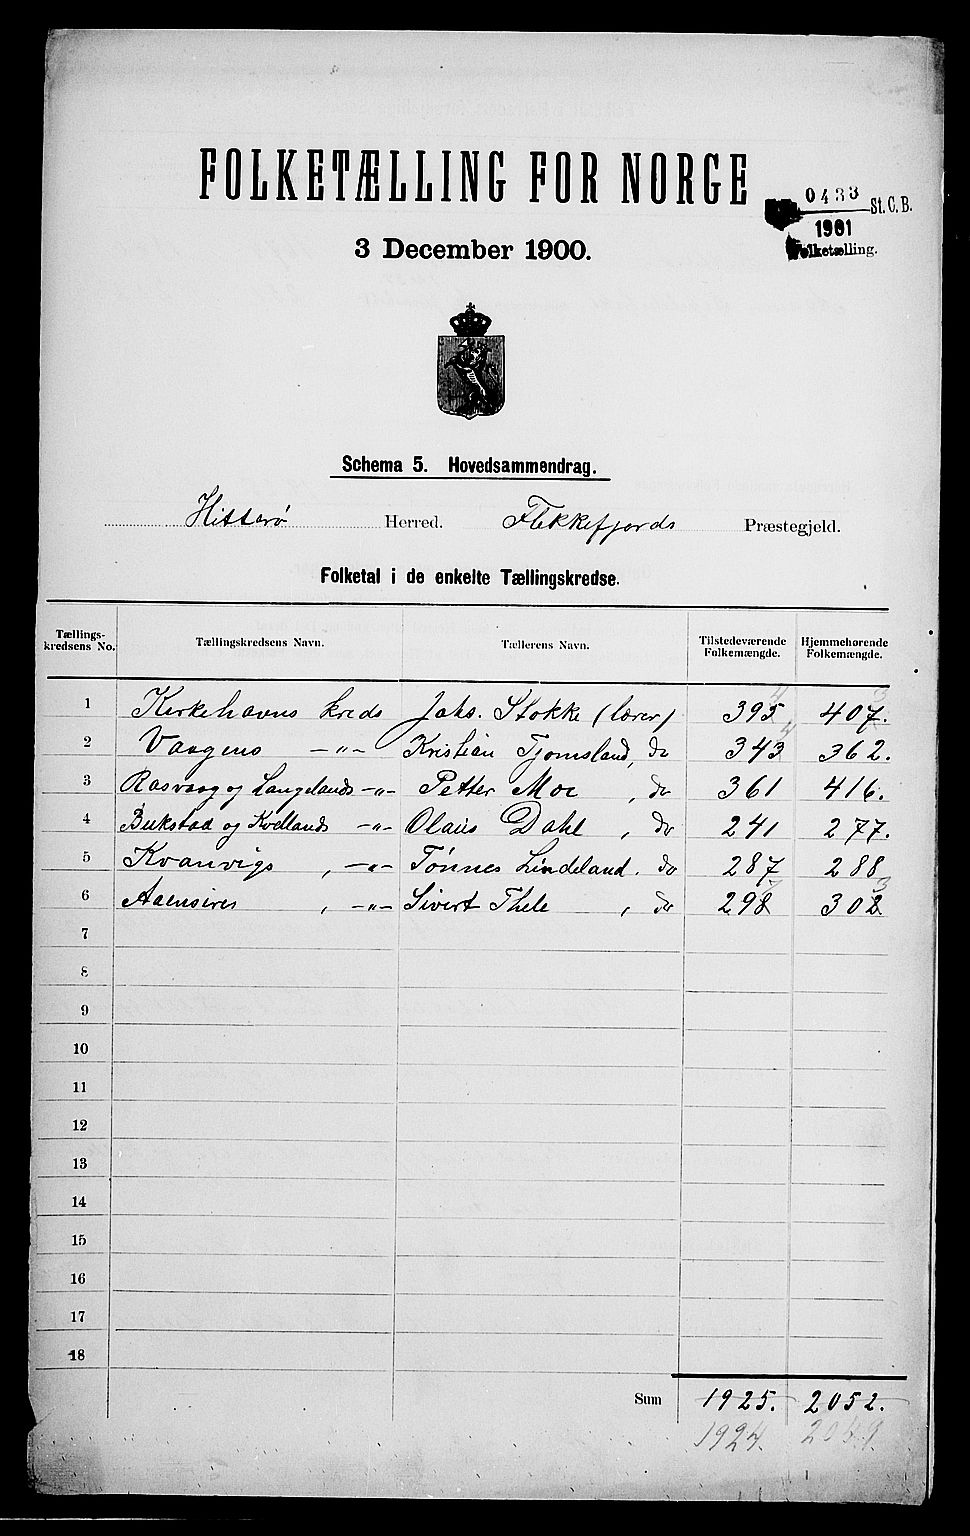 FOLKETÆLLING FOR NORGE
0433 St. C. B.
1901
Folketælling.
3 December 1900.
Schema 5. Hovedsammendrag.
Hitterø Herred. Flekkefjords Præstegjeld.
Folketal i de enkelte Tællingskredse.
Tællings-kredsens No. Tællingskredsens Navn. Tællerens Navn. Tilstedeværende Folkemængde. Hjemmehørende Folkemængde.
1 Kirkehavns kreds Johs. Stokke (lærer) 395 4 407. 3
2 Vaagens —„— Kristian Tjomsland, do 343 4 362.
3 Rasvaag og Langelands —„— Petter Moe, do 361 416.
4 Bukstad og Kvellands —„— Olaus Dahl, do 241 277.
5 Kvanvigs, —„— Tønnes Lindeland. do 287 288
6 Aaensires, —„— Sivert Thele, do 298 7 302 3
7
8
9
10
11
12
13
14
15
16
17
18
Sum 1925. 2052.
1924. 2049.